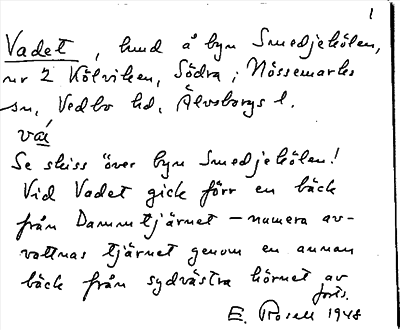 1
Vadet, hmd å byn Smedjekölen,
nr 2 Kölviken, Södra, i Nössemarks
sn, Vedbo hd, Älvsborgs l.
va
Se skiss över byn Smedjekölen!
Vid Vadet gick förr en bäck
från Dammtjärnet – numera av-
vattnas tjärnet genom en annan
bäck från sydvästra hörnet av
forts.
E. Rosell 1948